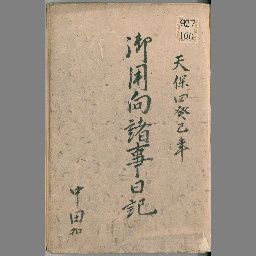 927
100
天保四癸巳年
御用向諸事日記
中田